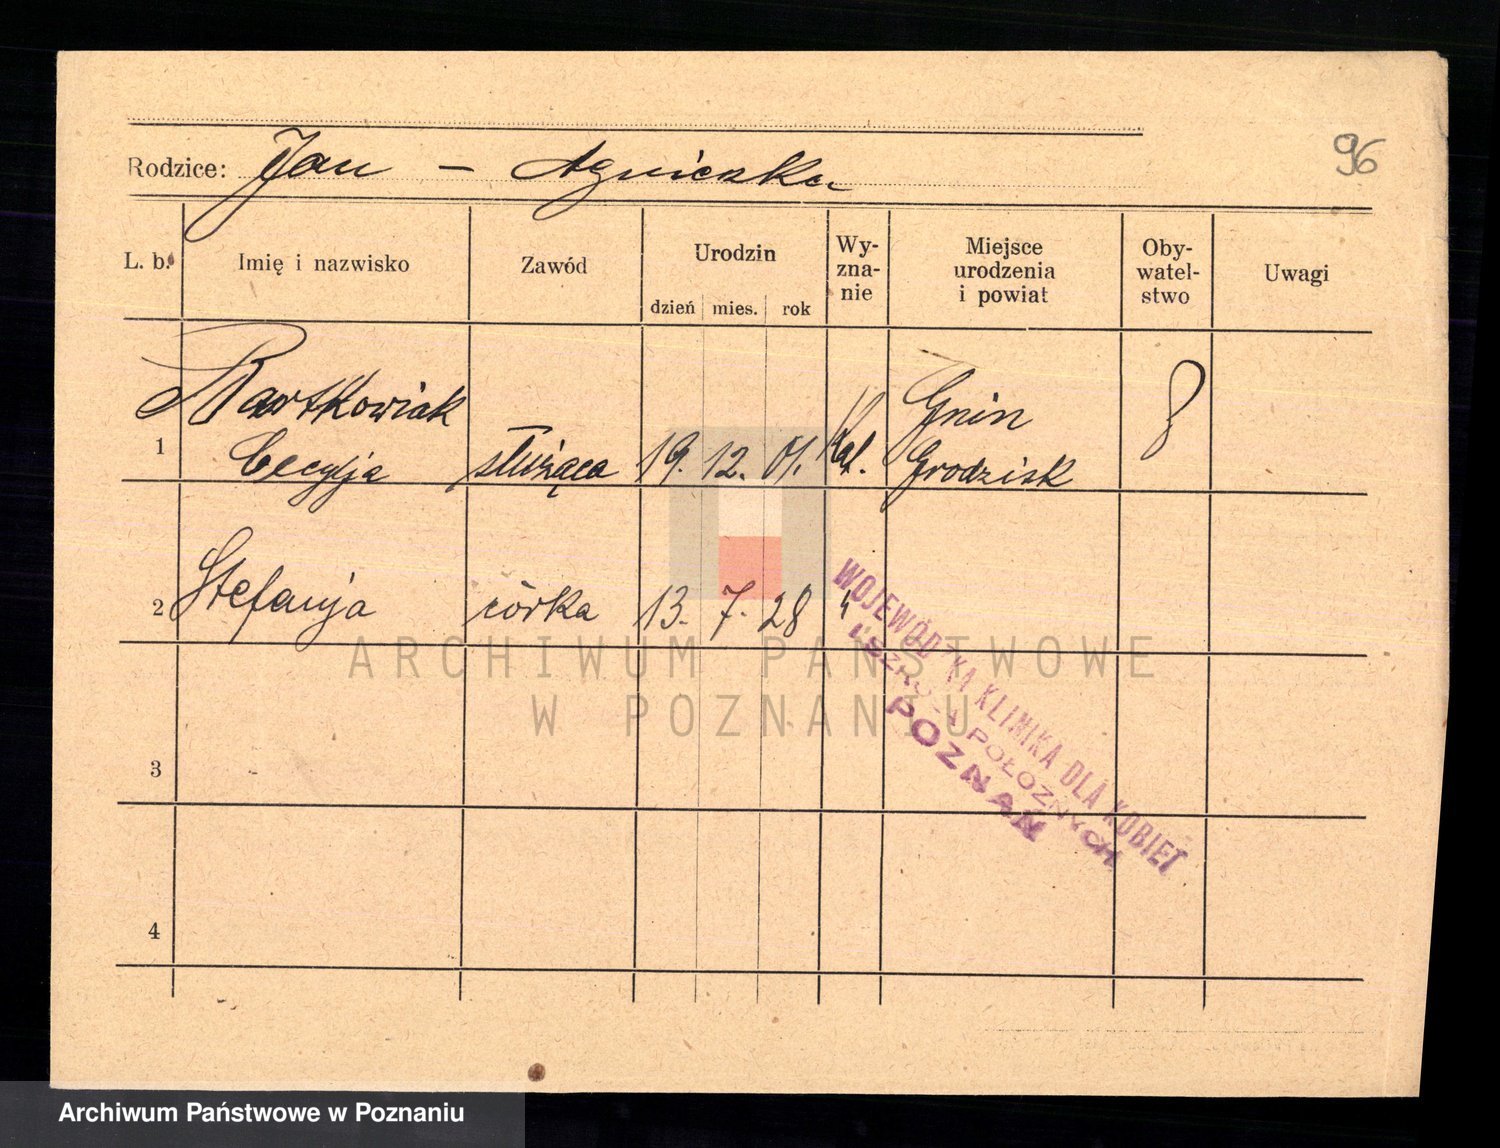 96
Rodzice: Jan – Agnieszka
L. b.
Imię i nazwisko
Zawód
Urodzin
dzień mies. rok
Wy-
zna-
nie
Miejsce
urodzenia
i powiat
Oby-
watel-
stwo
Uwagi
1
Bartkowiak
Cecylja
służąca
19. 12. 01.
Kat.
Gnin
Grodzisk
2
Stefanja
córka
13. 7. 28
3
4
WOJEWÓDZKA KLINIKA DLA KOBIET
I SZKOŁA POŁOŻNYCH
POZNAŃ
ARCHIWUM PAŃSTWOWE
W POZNANIU
Archiwum Państwowe w Poznaniu